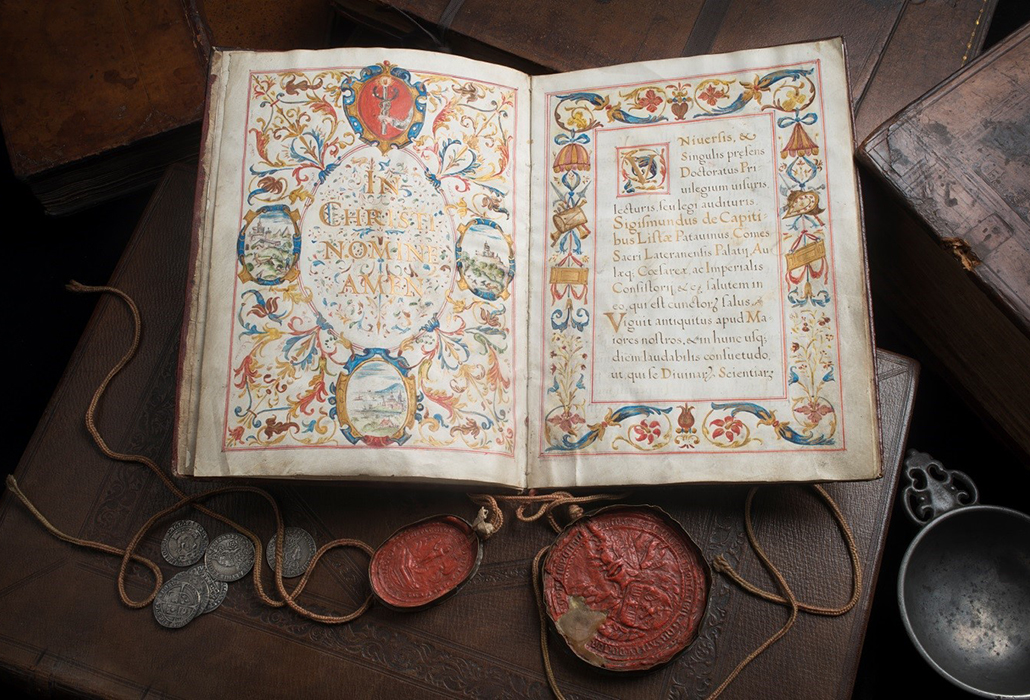 IN
CHRISTI
NOMINE
AMEN
VNiuersis, &
Singulis prẹsens
Doctoratus Pri
uilegium uisuris,
lecturis, seu legi audituris,
Sigismundus de Capiti-
bus Listæ Patauinus, Comes
Sacri Lateranensis Palatij, Au
læq; Cæsareæ, ac Imperialis
Consistorij, &c salutem in
eo, qui est cunctorꝫ salus.
Viguit antiquitus apud Ma
iores nostros, & in hunc usq;
diem laudabilis consuetudo,
ut qui se Diuinarꝫ Scientiarꝫ